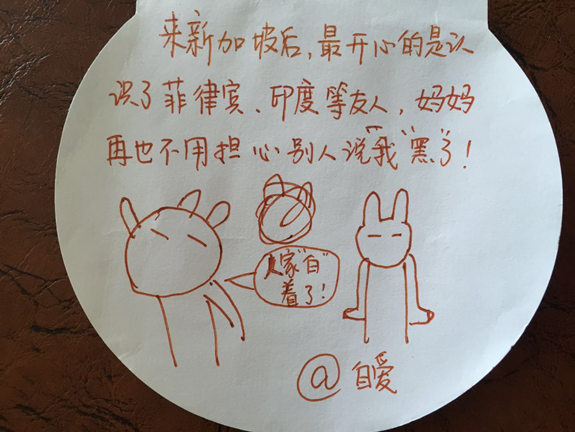 来新加坡后，最开心的是认
识了菲律宾、印度等友人，妈妈
再也不用担心别人说"我"黑"了！
大家"白"
着了！
@自爱